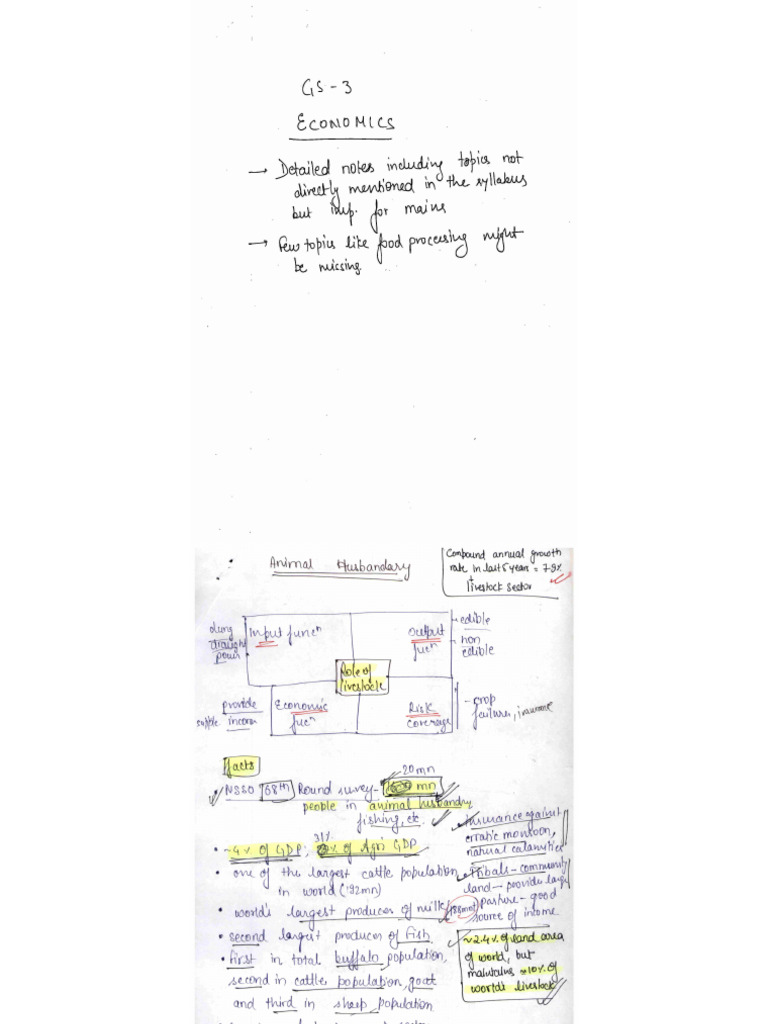 GS-3
ECONOMICS
→ Detailed notes including topics not
directly mentioned in the syllabus
but imp. for mains
→ Few topics like food processing might
be missing.
Animal Husbandary
Compound annual growth
rate in last 5 years = 7.9%
livestock sector
dung
draught
power
Input funcn
Output
fucn
- edible
- non
edible
Role of
livestock
provide
supple income
Economic
fucn
Risk
coverage
- crop
failures, insurance
facts
20mn
NSSO 68th Round survey- mn
people in animal husbandry
fishing, etc.
31%
• ~4% of GDP; % of Agri GDP
• one of the largest cattle population
in world (192mn)
• world's largest producer of milk (188mn)
• second largest producer of fish
• first in total buffalo population,
second in cattle population, goat
and third in sheep population
Insurance against
erratic monsoon,
natural calamities
Tribals - community
land → provide large
pasture - good
source of income
~2.4% of land area
of world, but
maintains ~10% of
world's livestock